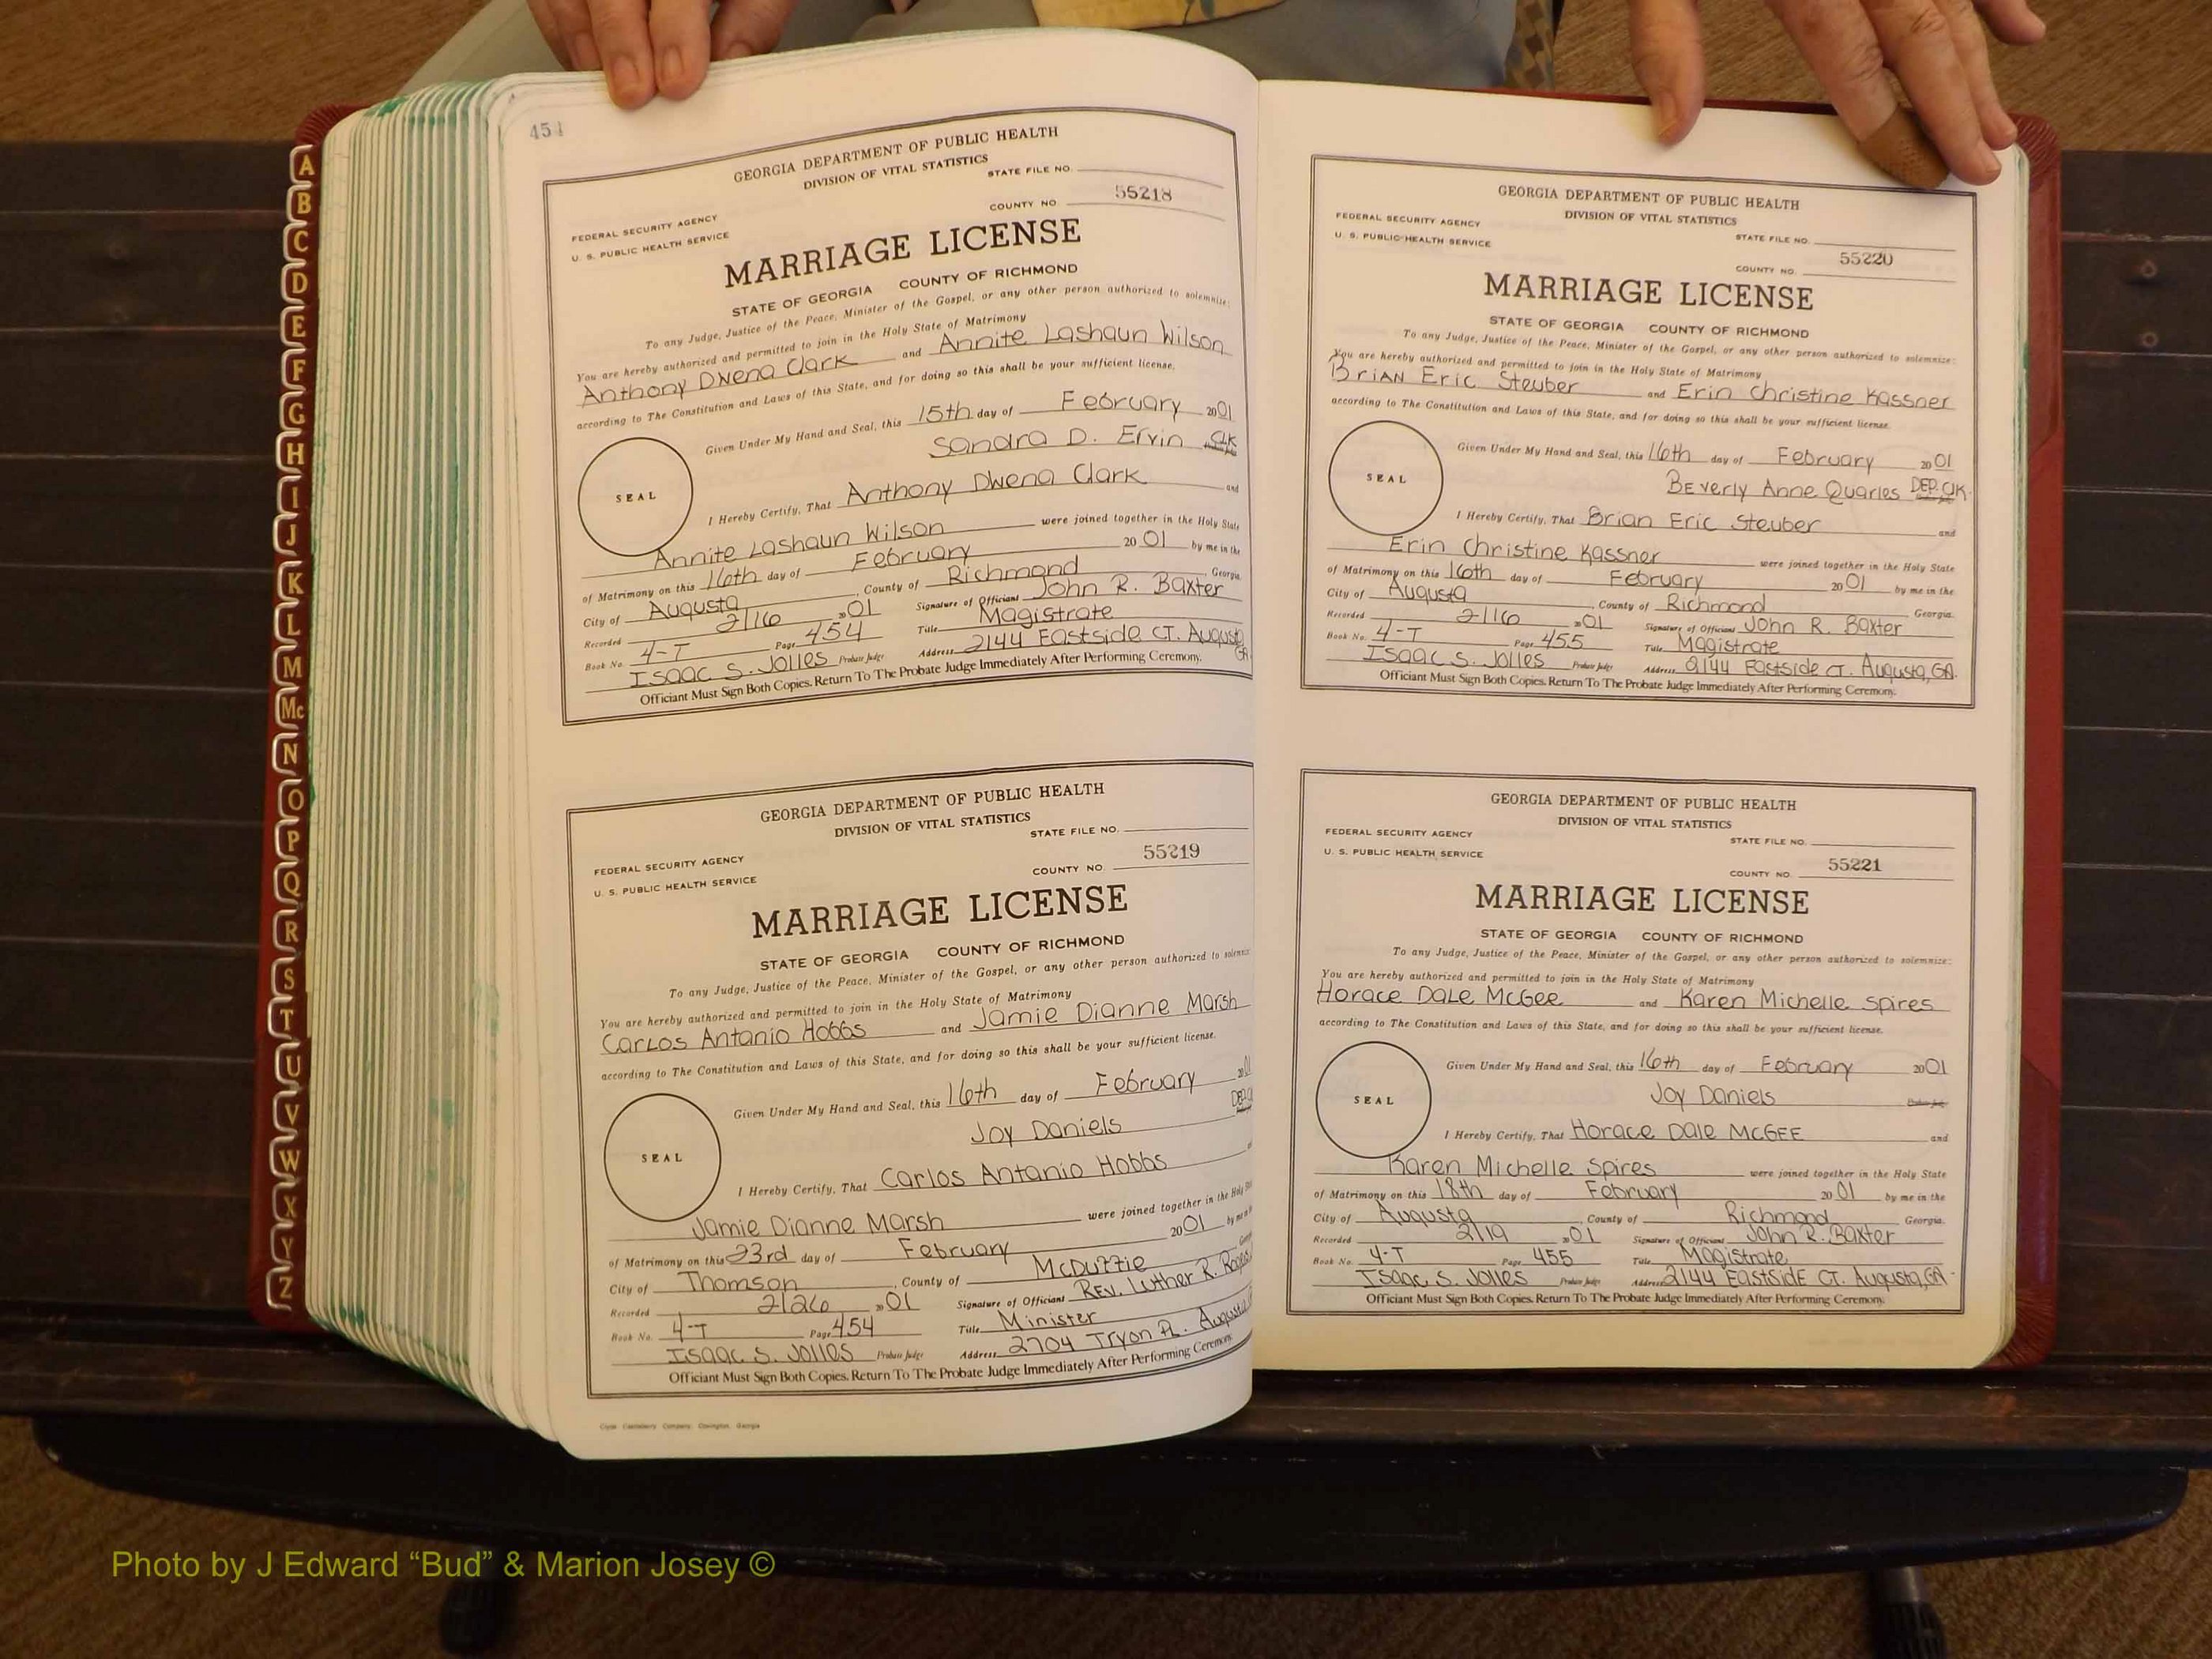 A
B
C
D
E
F
G
H
I
J
K
L
M
Mc
N
O
P
Q
R
S
T
U
V
W
X
Y
Z
454
GEORGIA DEPARTMENT OF PUBLIC HEALTH
DIVISION OF VITAL STATISTICS
STATE FILE NO.
FEDERAL SECURITY AGENCY
U. S. PUBLIC HEALTH SERVICE
COUNTY NO. 55218
MARRIAGE LICENSE
STATE OF GEORGIA COUNTY OF RICHMOND
To any Judge, Justice of the Peace, Minister of the Gospel, or any other person authorized to solemnize:
You are hereby authorized and permitted to join in the Holy State of Matrimony
Anthony Dwena Clark and Annite Lashaun Wilson
according to The Constitution and Laws of this State, and for doing so this shall be your sufficient license.
Given Under My Hand and Seal, this 15th day of February 2001
Sandra D. Ervin CLK
SEAL
I Hereby Certify, That Anthony Dwena Clark and
Annite Lashaun Wilson were joined together in the Holy State
of Matrimony on this 16th day of February 2001 by me in the
City of Augusta, County of Richmond Georgia.
Recorded 2/16 2001 Signature of Officiant John R. Baxter
Book No. 4-T Page 454 Title Magistrate
Isaac S. Jolles Probate Judge Address 2144 Eastside CT. Augusta GA
Officiant Must Sign Both Copies. Return To The Probate Judge Immediately After Performing Ceremony.
GEORGIA DEPARTMENT OF PUBLIC HEALTH
DIVISION OF VITAL STATISTICS
STATE FILE NO.
FEDERAL SECURITY AGENCY
U. S. PUBLIC HEALTH SERVICE
COUNTY NO. 55219
MARRIAGE LICENSE
STATE OF GEORGIA COUNTY OF RICHMOND
To any Judge, Justice of the Peace, Minister of the Gospel, or any other person authorized to solemnize:
You are hereby authorized and permitted to join in the Holy State of Matrimony
Carlos Antanio Hobbs and Jamie Dianne Marsh
according to The Constitution and Laws of this State, and for doing so this shall be your sufficient license.
Given Under My Hand and Seal, this 16th day of February 2001
Joy Daniels
SEAL
I Hereby Certify, That Carlos Antanio Hobbs
Jamie Dianne Marsh were joined together in the Holy
of Matrimony on this 23rd day of February 2001 by me in
City of Thomson, County of McDuffie
Recorded 2/26 2001 Signature of Officiant Rev. Luther R.
Book No. 4-T Page 454 Title Minister
Isaac S. Jolles Probate Judge Address 2704 Tryon PL. Augusta
Officiant Must Sign Both Copies. Return To The Probate Judge Immediately After Performing Ceremony.
Company, Covington, Georgia
GEORGIA DEPARTMENT OF PUBLIC HEALTH
DIVISION OF VITAL STATISTICS
FEDERAL SECURITY AGENCY
U. S. PUBLIC HEALTH SERVICE
STATE FILE NO.
COUNTY NO. 55220
MARRIAGE LICENSE
STATE OF GEORGIA COUNTY OF RICHMOND
To any Judge, Justice of the Peace, Minister of the Gospel, or any other person authorized to solemnize:
You are hereby authorized and permitted to join in the Holy State of Matrimony
Brian Eric Steuber and Erin Christine Kassner
according to The Constitution and Laws of this State, and for doing so this shall be your sufficient license.
Given Under My Hand and Seal, this 16th day of February 2001
Beverly Anne Quarles DEP. CLK.
SEAL
I Hereby Certify, That Brian Eric Steuber and
Erin Christine Kassner were joined together in the Holy State
of Matrimony on this 16th day of February 2001 by me in the
City of Augusta, County of Richmond Georgia.
Recorded 2/16 2001 Signature of Officiant John R. Baxter
Book No. 4-T Page 455 Title Magistrate
Isaac S. Jolles Probate Judge Address 2144 Eastside CT. Augusta, GA.
Officiant Must Sign Both Copies. Return To The Probate Judge Immediately After Performing Ceremony.
GEORGIA DEPARTMENT OF PUBLIC HEALTH
DIVISION OF VITAL STATISTICS
FEDERAL SECURITY AGENCY
U. S. PUBLIC HEALTH SERVICE
STATE FILE NO.
COUNTY NO. 55221
MARRIAGE LICENSE
STATE OF GEORGIA COUNTY OF RICHMOND
To any Judge, Justice of the Peace, Minister of the Gospel, or any other person authorized to solemnize:
You are hereby authorized and permitted to join in the Holy State of Matrimony
Horace Dale McGee and Karen Michelle Spires
according to The Constitution and Laws of this State, and for doing so this shall be your sufficient license.
Given Under My Hand and Seal, this 16th day of February 2001
Joy Daniels Probate Judge
SEAL
I Hereby Certify, That Horace Dale McGEE and
Karen Michelle Spires were joined together in the Holy State
of Matrimony on this 18th day of February 2001 by me in the
City of Augusta, County of Richmond Georgia.
Recorded 2/19 2001 Signature of Officiant John R. Baxter
Book No. 4-T Page 455 Title Magistrate
Isaac S. Jolles Probate Judge Address 2144 Eastside CT. Augusta, GA.
Officiant Must Sign Both Copies. Return To The Probate Judge Immediately After Performing Ceremony.
Photo by J Edward “Bud” & Marion Josey ©